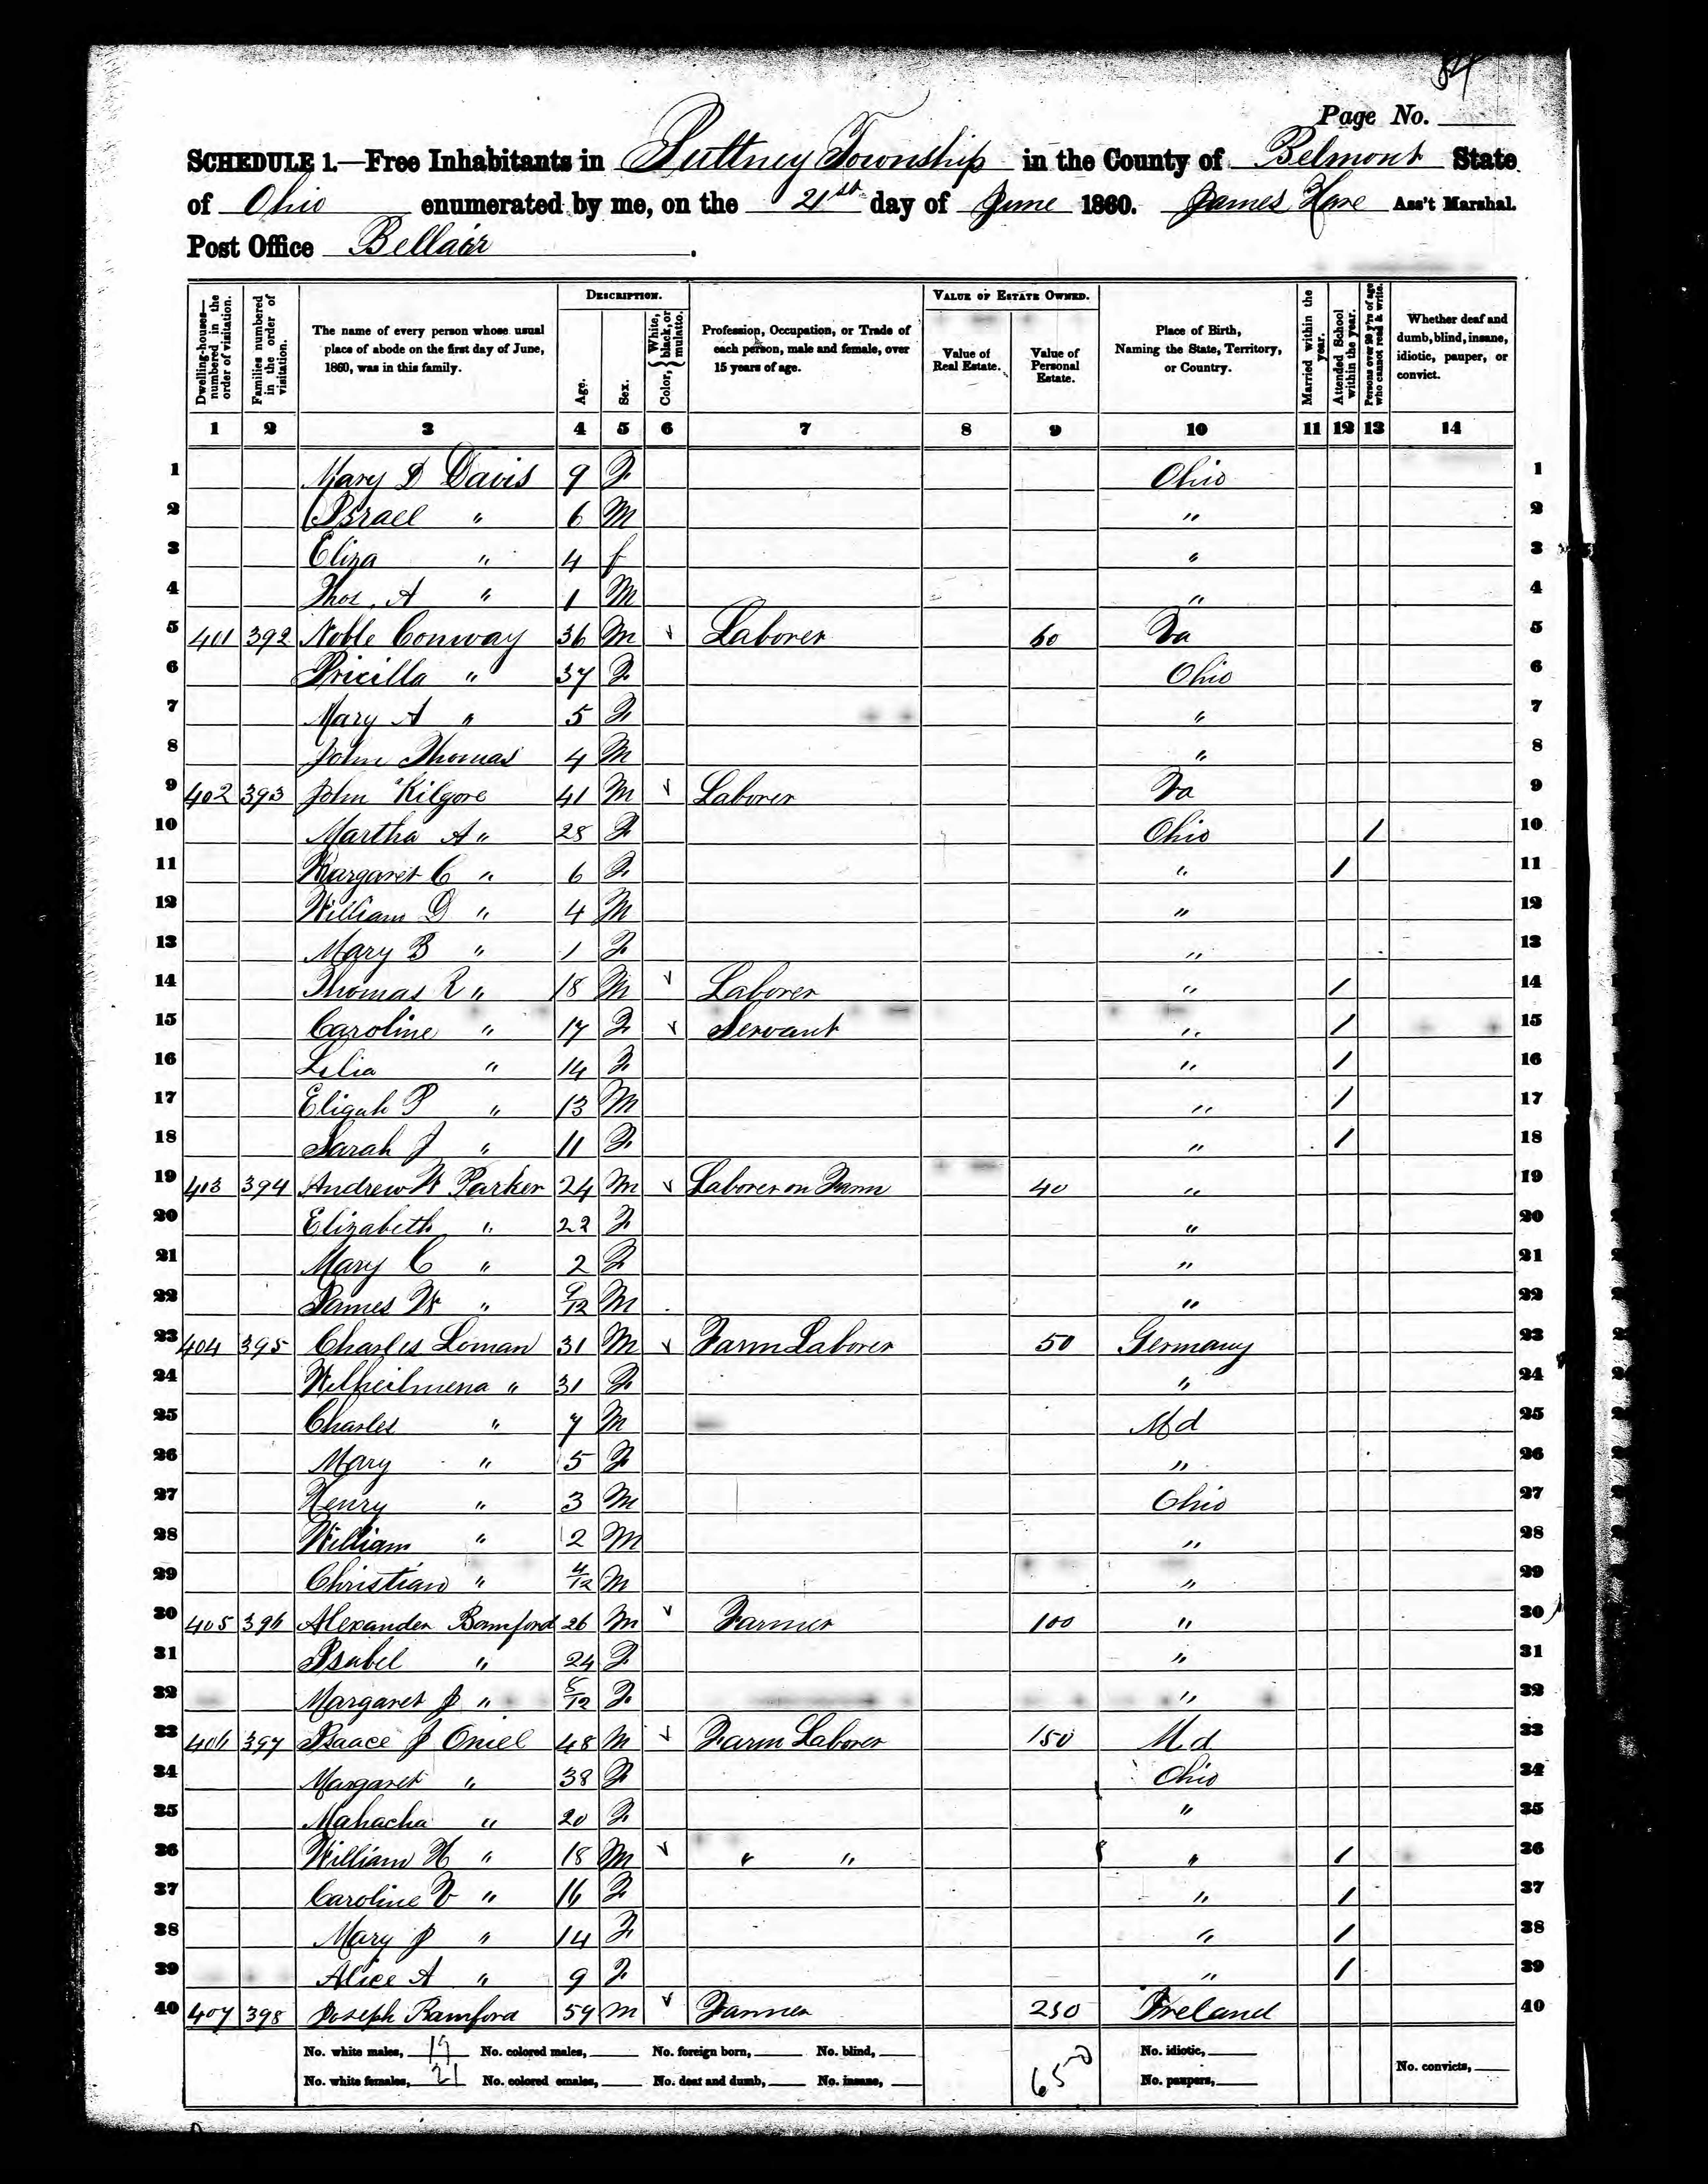 84
Page No.
SCHEDULE 1.—Free Inhabitants in Pultney Township in the County of Belmont State
of Ohio enumerated by me, on the 21st day of June 1860. James Hare Ass't Marshal.
Post Office Bellair.
Dwelling-houses—numbered in the order of visitation. Families numbered in the order of visitation. The name of every person whose usual place of abode on the first day of June, 1860, was in this family. DESCRIPTION. Age. Sex. Color, White, black, or mulatto. Profession, Occupation, or Trade of each person, male and female, over 15 years of age. VALUE OF ESTATE OWNED. Value of Real Estate. Value of Personal Estate. Place of Birth, Naming the State, Territory, or Country. Married within the year. Attended School within the year. Persons over 20 y'rs of age who cannot read & write. Whether deaf and dumb, blind, insane, idiotic, pauper, or convict.
1 2 3 4 5 6 7 8 9 10 11 12 13 14
1 Mary D Davis 9 F Ohio 1
2 Israel " 6 M " 2
3 Eliza " 4 f " 3
4 Thos. A " 1 M " 4
5 401 392 Noble Conway 36 M Laborer 60 Va 5
6 Pricilla " 37 F Ohio 6
7 Mary A " 5 F " 7
8 John Thomas 4 M " 8
9 402 393 John Kilgore 41 M Laborer Va 9
10 Martha A " 28 F Ohio / 10
11 Margaret C " 6 F " / 11
12 William D " 4 M " 12
13 Mary B " 1 F " 13
14 Thomas R " 18 M Laborer " / 14
15 Caroline " 17 F Servant " / 15
16 Lilia " 14 F " / 16
17 Eligah P " 13 M " / 17
18 Sarah J " 11 F " / 18
19 403 394 Andrew W Parker 24 M Laborer on Farm 40 " 19
20 Elizabeth " 22 F " 20
21 Mary C " 2 F " 21
22 James W " 9/12 M " 22
23 404 395 Charles Loman 31 M Farm Laborer 50 Germany 23
24 Welheilmena " 31 F " 24
25 Charles " 7 M Md 25
26 Mary " 5 F " 26
27 Henry " 3 M Ohio 27
28 William " 2 M " 28
29 Christian " 4/12 M " 29
30 405 396 Alexander Bamford 26 M Farmer 100 " 30
31 Isabel " 24 F " 31
32 Margaret J " 8/12 F " 32
33 406 397 Isaace J Oniel 48 M Farm Laborer 150 Md 33
34 Margaret " 38 F Ohio 34
35 Mahacha " 20 F " 35
36 William H " 18 M " " " / 36
37 Caroline V " 16 F " / 37
38 Mary J " 14 F " / 38
39 Alice A " 9 F " / 39
40 407 398 Joseph Bamford 59 M Farmer 250 Ireland 40
No. white males, 19 No. colored males, No. foreign born, No. blind, No. idiotic,
No. white females, 21 No. colored emales, No. deaf and dumb, No. insane, 650 No. paupers, No. convicts,